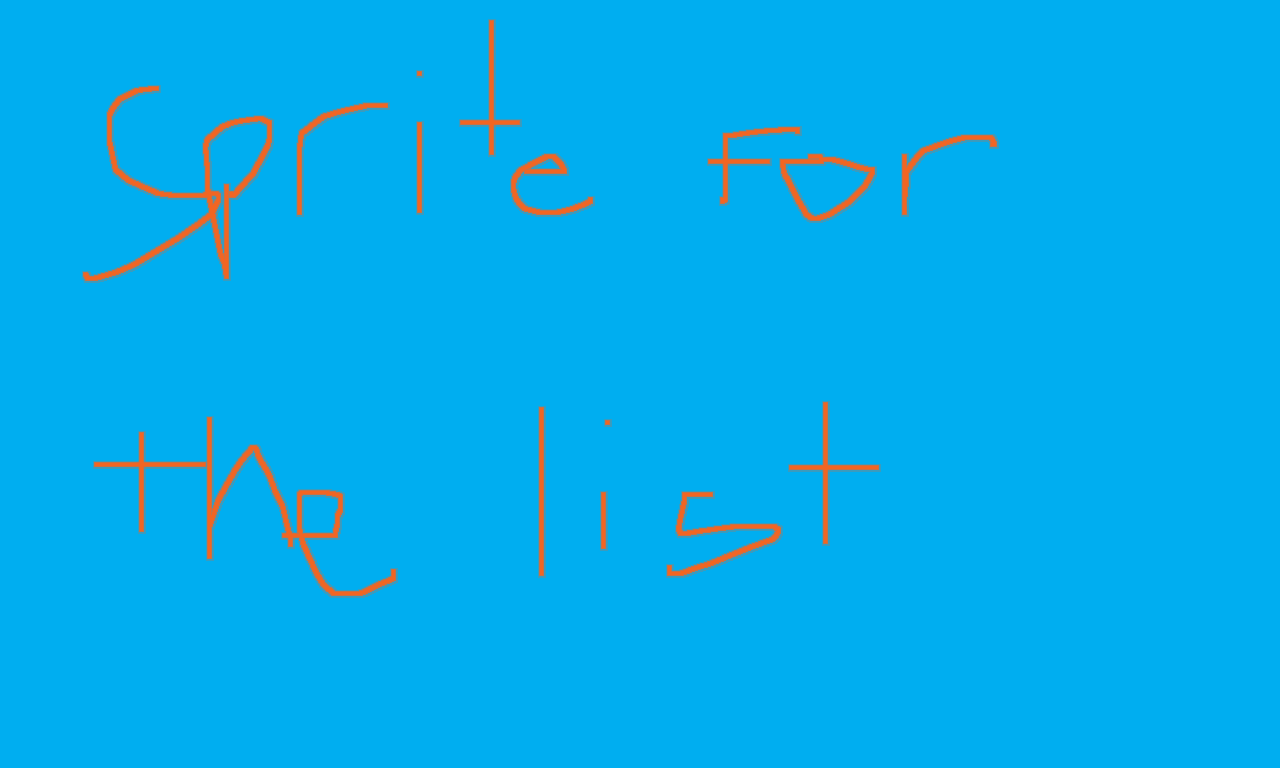 Sprite For
the list